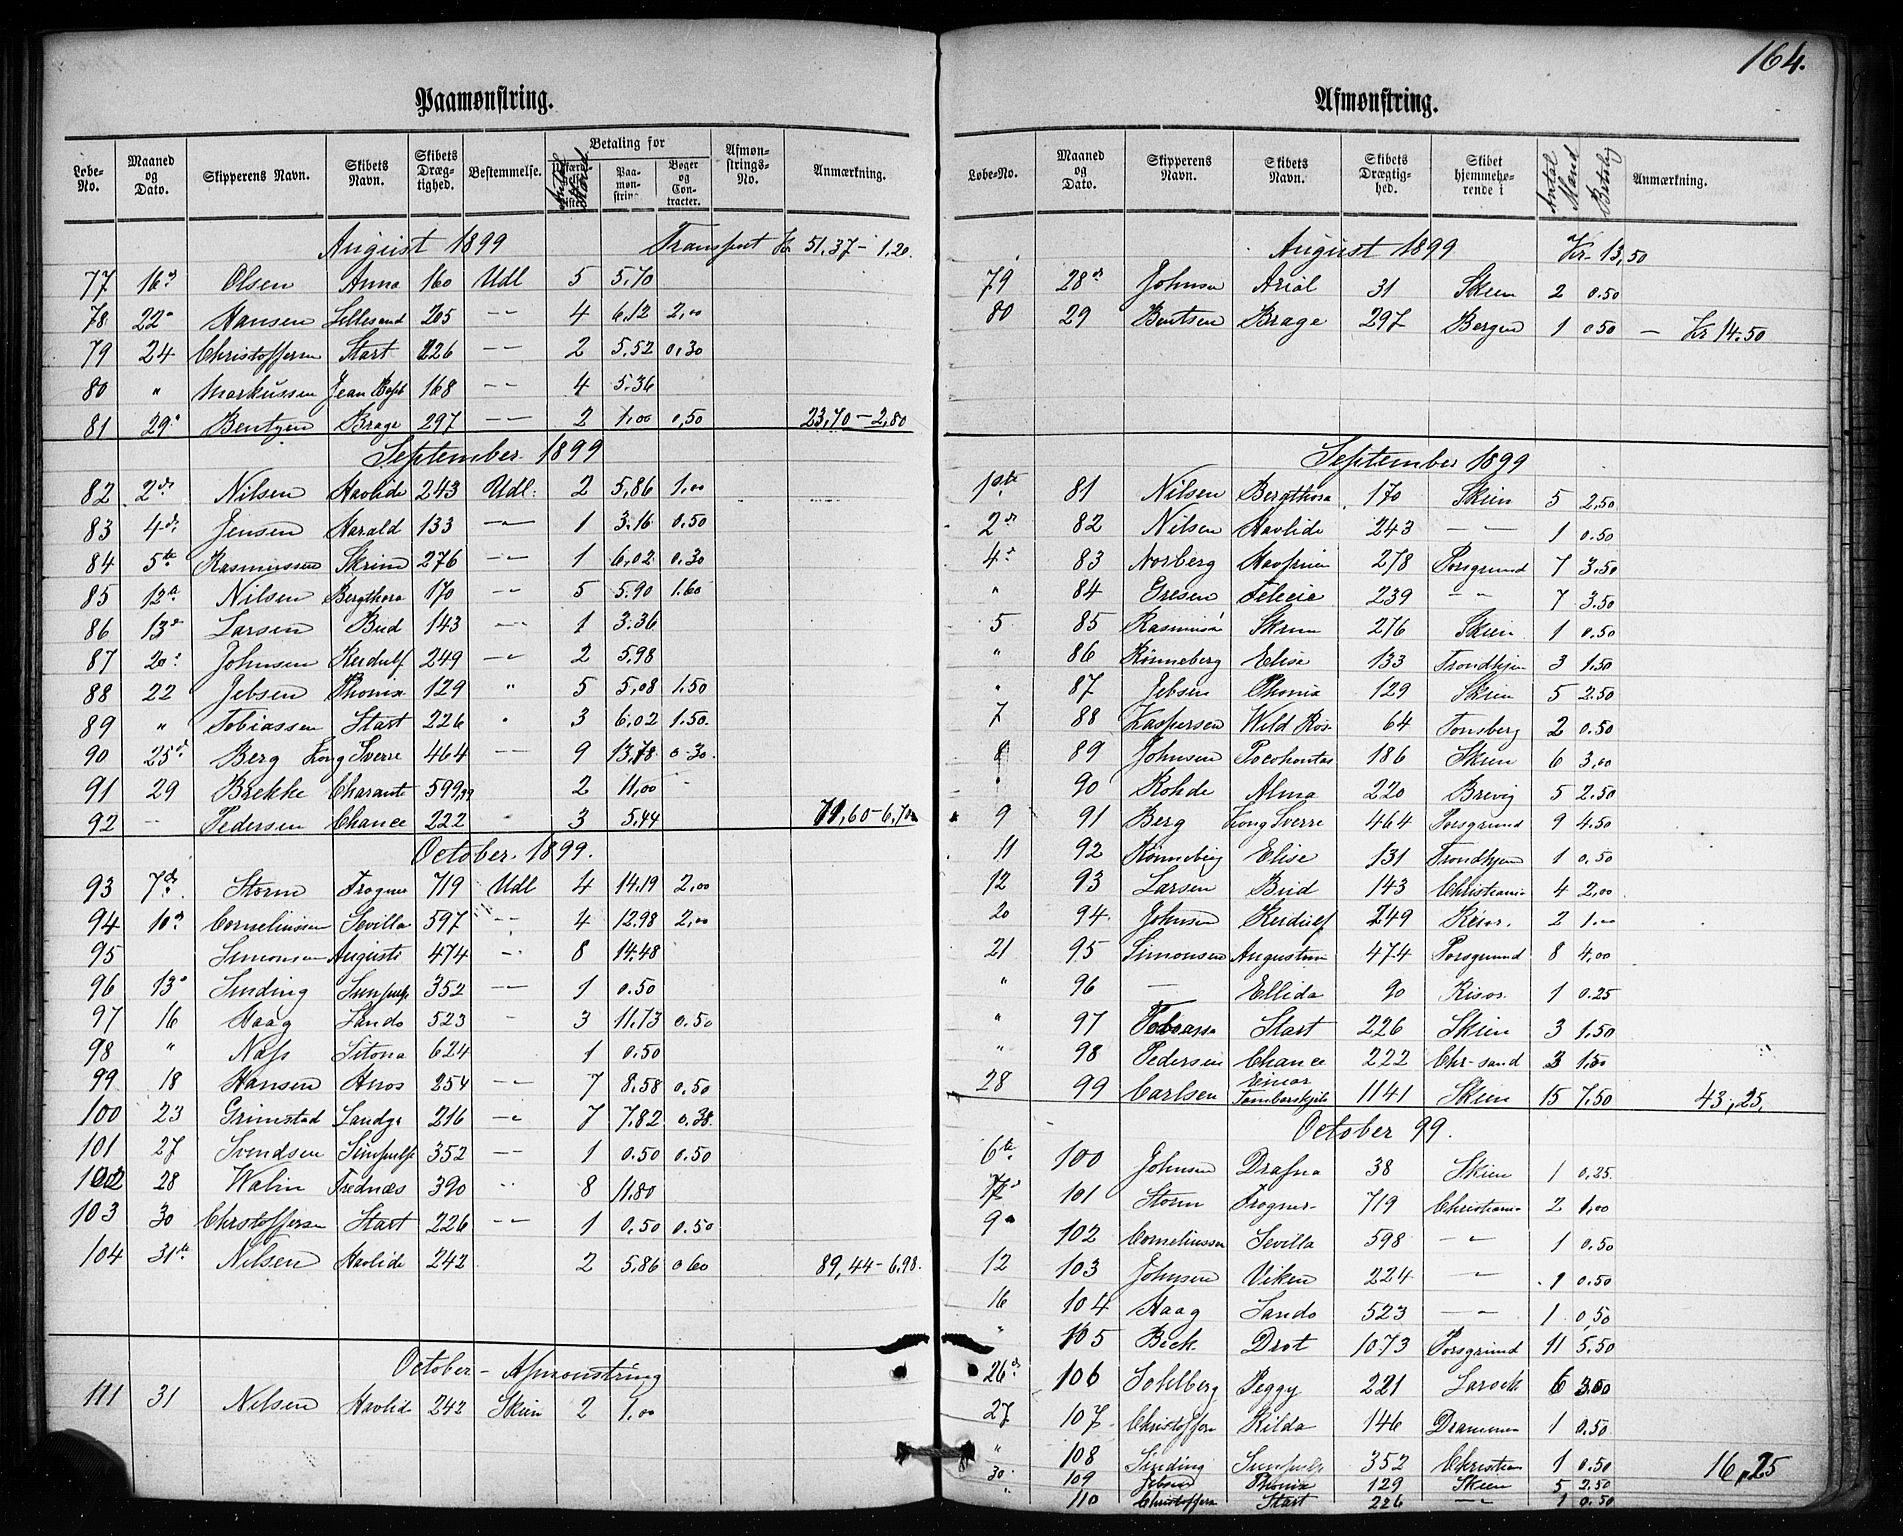 164.
Paamønstring.
Løbe-No. Maaned og Dato. Skipperens Navn. Skibets Navn. Skibets Dræg-tighed. Bestemmelse. Betaling for Antal Mand Paa-møn-string Bøger og Con-tracter. Afmøn-strings-No. Anmærkning.
August 1899 Transport Kr 51,37 - 1,20.
77 16 Olsen Anna 160 Udl 5 5,70
78 22 Hansen Lillesand 205 -"- 4 6,12 2,00
79 24 Christoffersen Start 226 -"- 2 5,52 0,30
80 " Markussen Jean Bapt 168 -"- 4 5.36
81 29 Bentzen Brage 297 -"- 2 1,00 0,50 23,70 - 2,80
September 1899
82 2d. Nilsen Havlide 243 Udl. 2 5,86 1,00
83 4d. Jensen Harald 133 -"- 1 3.16 0.50
84 5te Rasmussen Skrim 276 -"- 1 6,02 0.30
85 12 Nilsen Bergthora 170 -"- 5 5.90 1.60
86 13 Larsen Bud 143 -"- 1 3.36
87 20 Johnsen Herdulf 249 -"- 2 5,98
88 22 Jebsen Phönix 129 " 5 5,08 1.50
89 " Tobiassen Start 226 " 3 6,02 1.50.
90 25d. Berg Kong Sverre 464 -"- 9 13,78 0.30.
91 29 Brekke Charante 599,99 2 11,00
92 -- Pedersen Chance 222 3 5,44 71,60 - 6,70
October 1899.
93 7d. Storm Frogner 719 Udl 4 14.19 2,00
94 10 Corneliussen Sevilla 597 -"- 4 12.98 2,00
95 Simonsen Augusti 474 -"- 8 14.48
96 13 Sinding 352 -"- 1 0.50
97 16 Haag Sando 523 - 3 11.73 0.50
98 " Næss Sitona 624 1 0.50
99 18 Hansen Huos 254 -"- 7 8.58 0.50
100 23 Grimstad 216 -"- 7 7.82 0.38.
101 27 Svendsen 352 -"- 1 0.50 0.50
102 28 Walin Frednæs 390 " 8 11.80
103 30 Christoffersen Start 226 -"- 1 0.50 0.50
104 31te Nilsen Havlide 242 2 5.86 0.60 89,44 - 6,98.
October - Afmonstring
111 31 Nilsen Havlid 242 Skien 2 1,00
Afmønstring.
Løbe-No. Maaned og Dato. Skipperens Navn. Skibets Navn. Skibets Drægtig-hed. Skibet hjemmehø-rende i Antal Mand Betaling Anmærkning.
August 1899 Kr. 13,50
79 28d Johnsen Arial 31 Skien 2 0.50
80 29 Bentsen Brage 297 Bergen 1 0.50 - Kr 14.50
September 1899
1ste 81 Nilsen Bergthora 170 Skien 5 2,50
2d. 82 Nilsen Havlide 243 -"- 1 0.50
4d 83 Norberg 278 Porsgrund 7 3.50
" 84 Gresen Felicia 239 -"- 7 3.50
5 85 Skrim 276 Skien 1 0.50
" 86 Rönneberg Elise 133 Trondhjem 3 1.50
" 87 Jebsen Phönix 129 Skien 5 2.50
7 88 Kaspersen Wild Ros 64 Tonsberg 2 0.50
8 89 Johnsen Pocohontas 186 Skien 6 3,00
" 90 Rohde Alma 220 Brevig 5 2.50
9 91 Berg Kong Sverre 464 Porsgrund 9 4.50
11 92 Rönneberg Elise 131 Trondhjem 1 0.50
12 93 Larsen Bud 143 Christiania 4 2,00
20 94. Johnsen Herdulf 249 Risör. 2 1.00
21 95 Simonsen Augustin 474 Porsgrund 8 4,00
" 96 -- Ellida 90 Risör. 1 0.25
" 97 Start 226 Skien 3 1.50
" 98 Pedersen Chance 222 Chr-sand 3 1.50
28 99 Carlsen Einar Tambarskjelv 1141 Skien 15 7.50 43,25.
October 99.
6te 100 Johnsen Drafna 38 Skien 1 0.25.
7d 101 Storm Frogner 719 Christiania 2 1,00
9 102 Corneliussen Sevilla 598 -"- 1 0.50
12 103 Johnsen Viken 224 -"- 1 0.50
16 104 Haag Sando 523 -"- 1 0,50
" 105 Beck Drot 1073 Porsgrund 11 5,50
26d. 106 Sohlberg Peggy 221 Larvik 6 3,00
27 107 Christoffersen Kilda 146 Drammen 1 0.50
" 108 Sinding 352 Christiania 1 0.50 16,25
30 109 Jebsen Phönix 129 Skien 5 2.50
" 110 Christoffersen Start 226 -"- 1 0.50